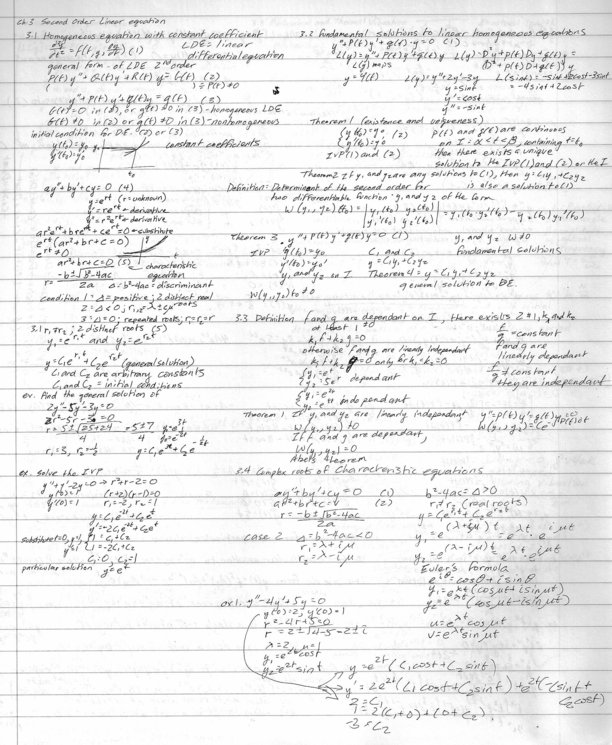 Ch.3 Second Order Linear equation
3.1 Homogeneous equation with constant coefficient
dy²/dt² = f(t, y, dy/dt) (1) LDE = linear differential equation
general form of LDE 2nd order
P(t)y''+Q(t)y'+R(t)y = G(t) (2)
÷ P(t)≠0
y''+p(t)y'+q(t)y = g(t) (3)
G(t)=0 in (2), or g(t)=0 in (3) - homogeneous LDE
G(t)≠0 in (2) or g(t)≠0 in (3) - nonhomogeneous
initial condition for DE (2) or (3)
y(t₀)=y₀
y'(t₀)=y₀'
constant coefficients
ay''+by'+cy=0 (4)
y=e^rt (r=unknown)
y'=re^rt - derivative
y''=r²e^rt - derivative
ar²e^rt+bre^rt+ce^rt=0 - substitute
e^rt(ar²+br+c=0)
e^rt≠0
ar²+br+c=0 (5) characteristic equation
r = -b±√b²-4ac / 2a Δ=b²-4ac = discriminant
condition 1: Δ=positive; 2 distinct real roots
2: Δ<0; r₁,r₂=λ±iμ
3: Δ=0; repeated roots, r₁=r₂=r
3.1 r₁≠r₂; 2 distinct roots (5)
y₁=e^r₁t and y₂=e^r₂t
y=C₁e^r₁t+C₂e^r₂t (general solution)
C₁ and C₂ are arbitrary constants
C₁ and C₂ = initial conditions
ex. find the general solution of
2y''-5y'-3y=0
2r²-5r-3=0
r = 5±√25+24 / 4 = 5±7 / 4 y₁=e^3t
y₂=e^-½t
r₁=3, r₂=-½ y=C₁e^3t+C₂e^-½t
ex. solve the IVP
y''+y'-2y=0 → r²+r-2=0
y(0)=1 (r+2)(r-1)=0
y'(0)=1 r₁=-2, r₂=1
y=C₁e^-2t+C₂e^t
y'=-2C₁e^-2t+C₂e^t
substitute t=0, y=1, 1=C₁+C₂
y'=1 1=-2C₁+C₂
C₁=0, C₂=1
particular solution y=e^t
3.2 Fundamental solutions to linear homogeneous equations
y''+p(t)y'+q(t)·y=0 (1)
L(y)=y''+p(t)y'+q(t)y L(y)=D²y+p(t)Dy+q(t)y=
L(φ) maps (D²+p(t)D+q(t))y
y=φ(t) L(y)=y''+2y'-3y L(sint)=-sint+2cost-3sint
y=sint =-4sint+2cost
y'=cost
y''=-sint
Theorem 1 (existence and uniqueness)
{y(t₀)=y₀ (2) p(t) and q(t) are continuous
{y'(t₀)=y₀' on I=α<t<β, containing t=t₀
IVP (1) and (2) then there exists a unique
solution to the IVP (1) and (2) on the I
Theorem 2 If y₁ and y₂ are any solutions to (1), then y=C₁y₁+C₂y₂
is also a solution to (1)
Definition: Determinant of the second order for
two differentiable function y₁ and y₂ of the form
W(y₁,y₂)(t₀)=|y₁(t₀) y₂(t₀)| =y₁(t₀)y₂'(t₀)-y₂(t₀)y₁'(t₀)
|y₁'(t₀) y₂'(t₀)|
Theorem 3 y''+p(t)y'+q(t)y=0 (1) y₁ and y₂ W≠0
IVP y(t₀)=y₀ C₁ and C₂ fundamental solutions
y'(t₀)=y₀' y=C₁y₁+C₂y₂
y₁ and y₂ on I Theorem 4 = y=C₁y₁+C₂y₂
W(y₁,y₂)t₀≠0 general solution to DE.
3.3 Definition f and g are dependant on I, there exists 2 #'s, k₁ and k₂
at least 1≠0 f/g=constant
k₁f+k₂g=0 f and g are
otherwise f and g are linearly independant linearly dependant
k₁f+k₂g=0 only for k₁=k₂=0 f/g≠constant
{y₁=e^t they are independant
{y₂=5e^t dependant
{y₁=e^2t
{y₂=e^t independant
Theorem 1 If y₁ and y₂ are linearly independant y''+p(t)y'+q(t)y=0
W(y₁,y₂)≠0 W(y₁,y₂)=Ce^-∫p(t)dt
If f and g are dependant,
W(y₁,y₂)=0
Abel's theorem
3.4 Complex roots of Characteristic equations
ay''+by'+cy=0 (1) b²-4ac=Δ>0
ar²+br+c=0 (2) r₁≠r₂ (real roots)
r = -b±√b²-4ac / 2a y=C₁e^r₁t+C₂e^r₂t
case 2 Δ=b²-4ac<0 y₁=e^(λ+iμ)t=e^λt·e^iμt
r₁=λ+iμ
r₂=λ-iμ y₂=e^(λ-iμ)t=e^λt·e^-iμt
Euler's formula
e^iθ=cosθ+isinθ
y₁=e^λt(cosμt+isinμt)
y₂=e^λt(cosμt-isinμt)
u=e^λt cosμt
v=e^λt sinμt
ex 1. y''-4y'+5y=0
y(0)=2, y'(0)=1
r²-4r+5=0
r=2±√4-5=2±i
λ=2, μ=1
y₁=e^2t cost
y₂=e^2t sint
y=e^2t(C₁cost+C₂sint)
y'=2e^2t(C₁cost+C₂sint)+e^2t(-C₁sint+C₂cost)
2=C₁
1=2(C₁+0)+(0+C₂)
-3=C₂